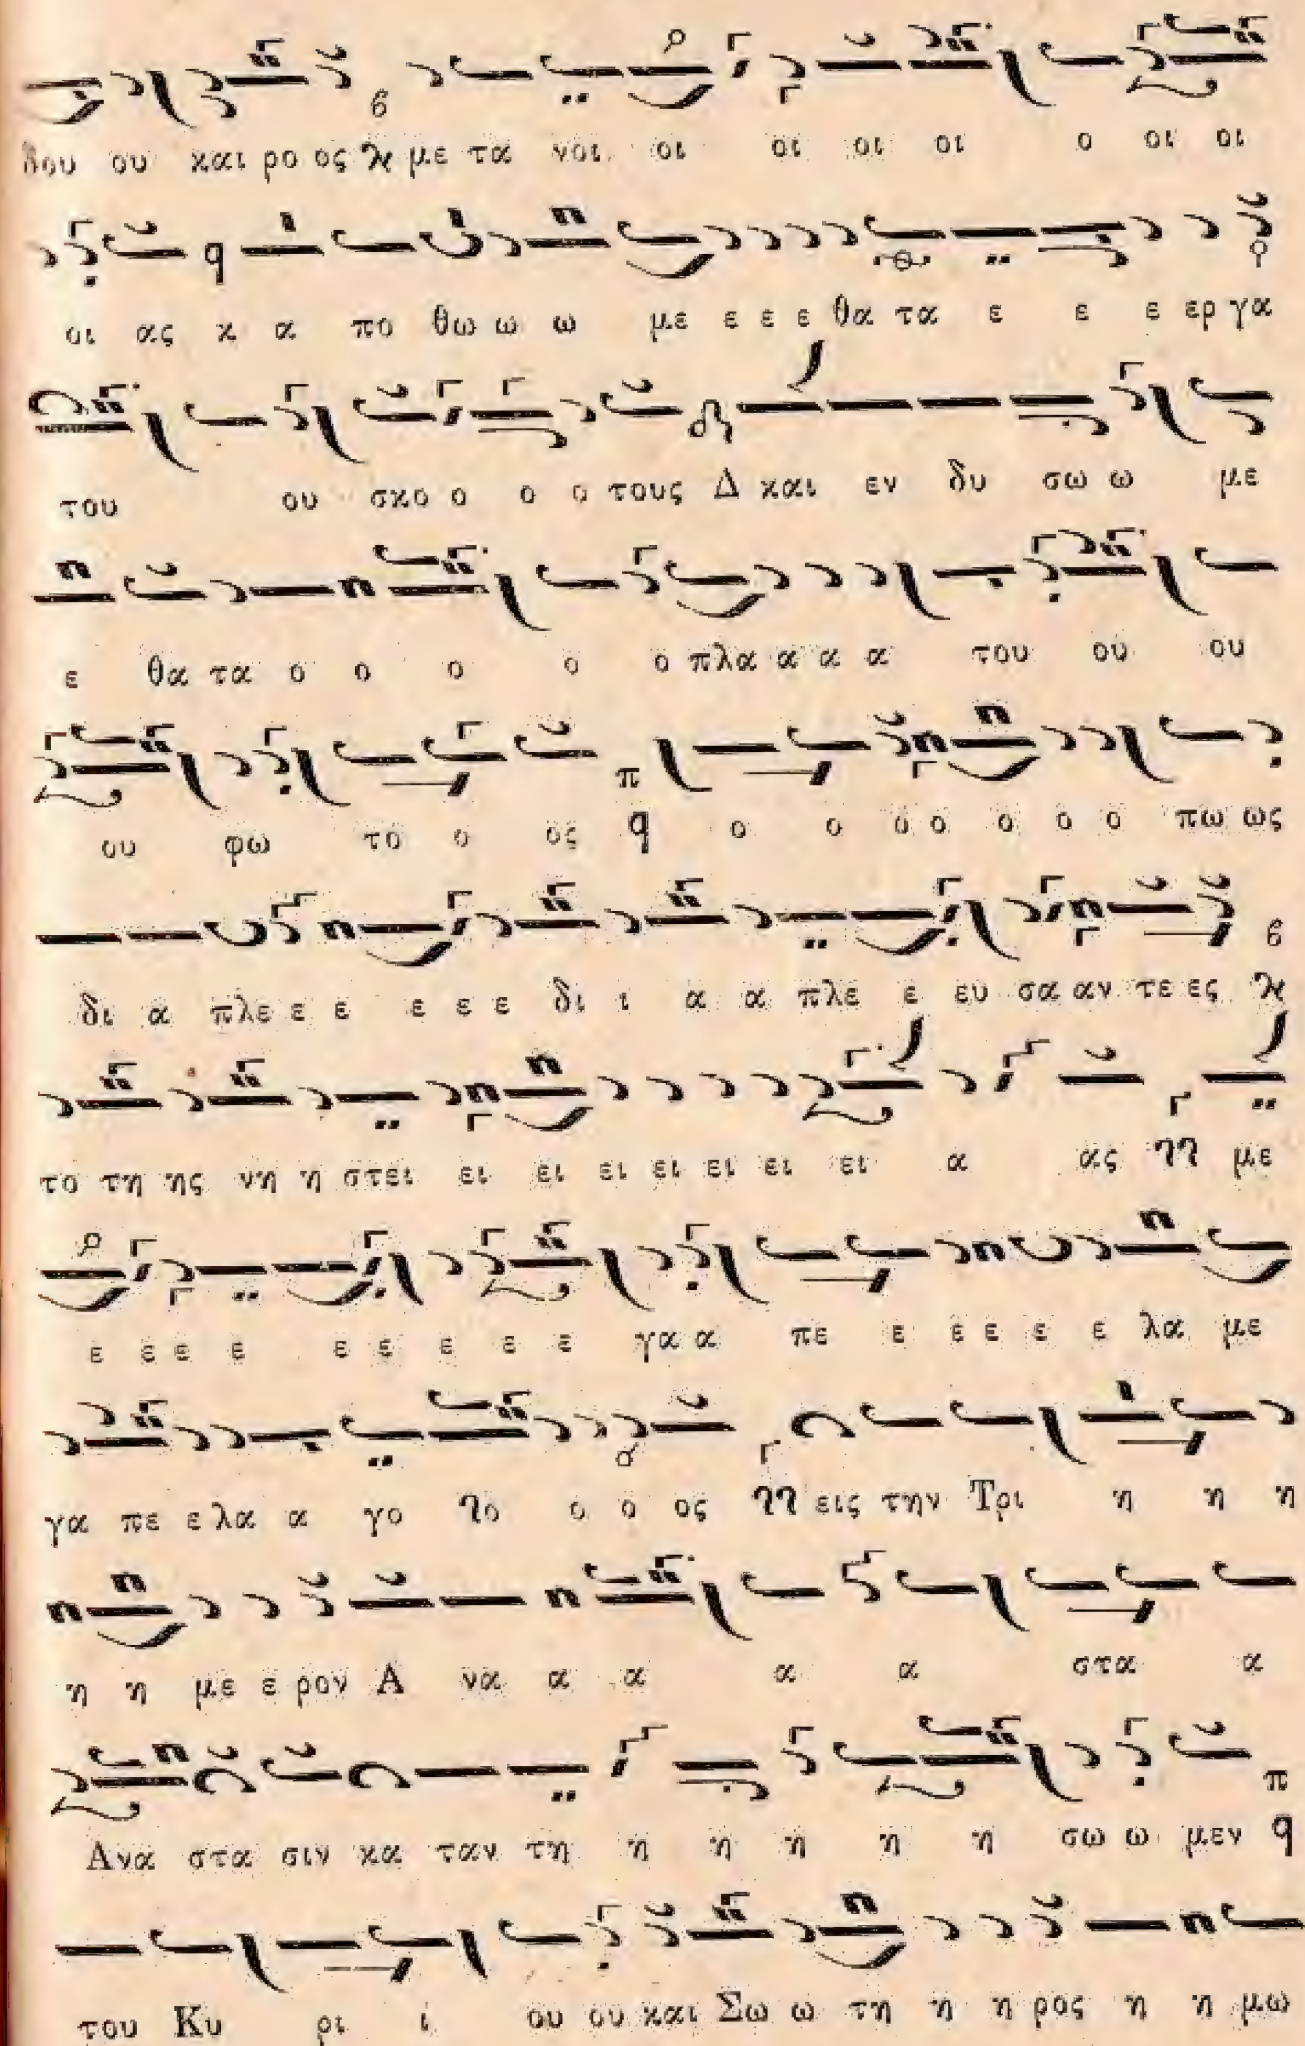 δου ου και ρο ος ϗ με τα νοι οι οι οι οι ο οι οι
οι ας κ α πο θω ω ω με ε ε ε θα τα ε ε ε ερ γα
του ου σκο ο ο ο τους Δ και εν δυ σω ω με
ε θα τα ο ο ο ο ο πλα α α α του ου ου
ου φω το ο ος q ο ο ο ο ο ο ο πω ως
δι α πλε ε ε ε ε ε δι ι α α πλε ε ευ σα αν τε ες ϗ
το τη ης νη η στει ει ει ει ει ει ει ει α ας με
ε ε ε ε ε ε ε ε ε γα α πε ε ε ε ε ε λα με
γα πε ε λα α γο ο ο ος εις την Τρι η η η
η η με ε ρον Α να α α α α στα α
Ανα στα σιν κα ταν τη η η η η η σω ω μεν q
του Κυ ρι ι ου ου και Σω ω τη η η ρος η η μω